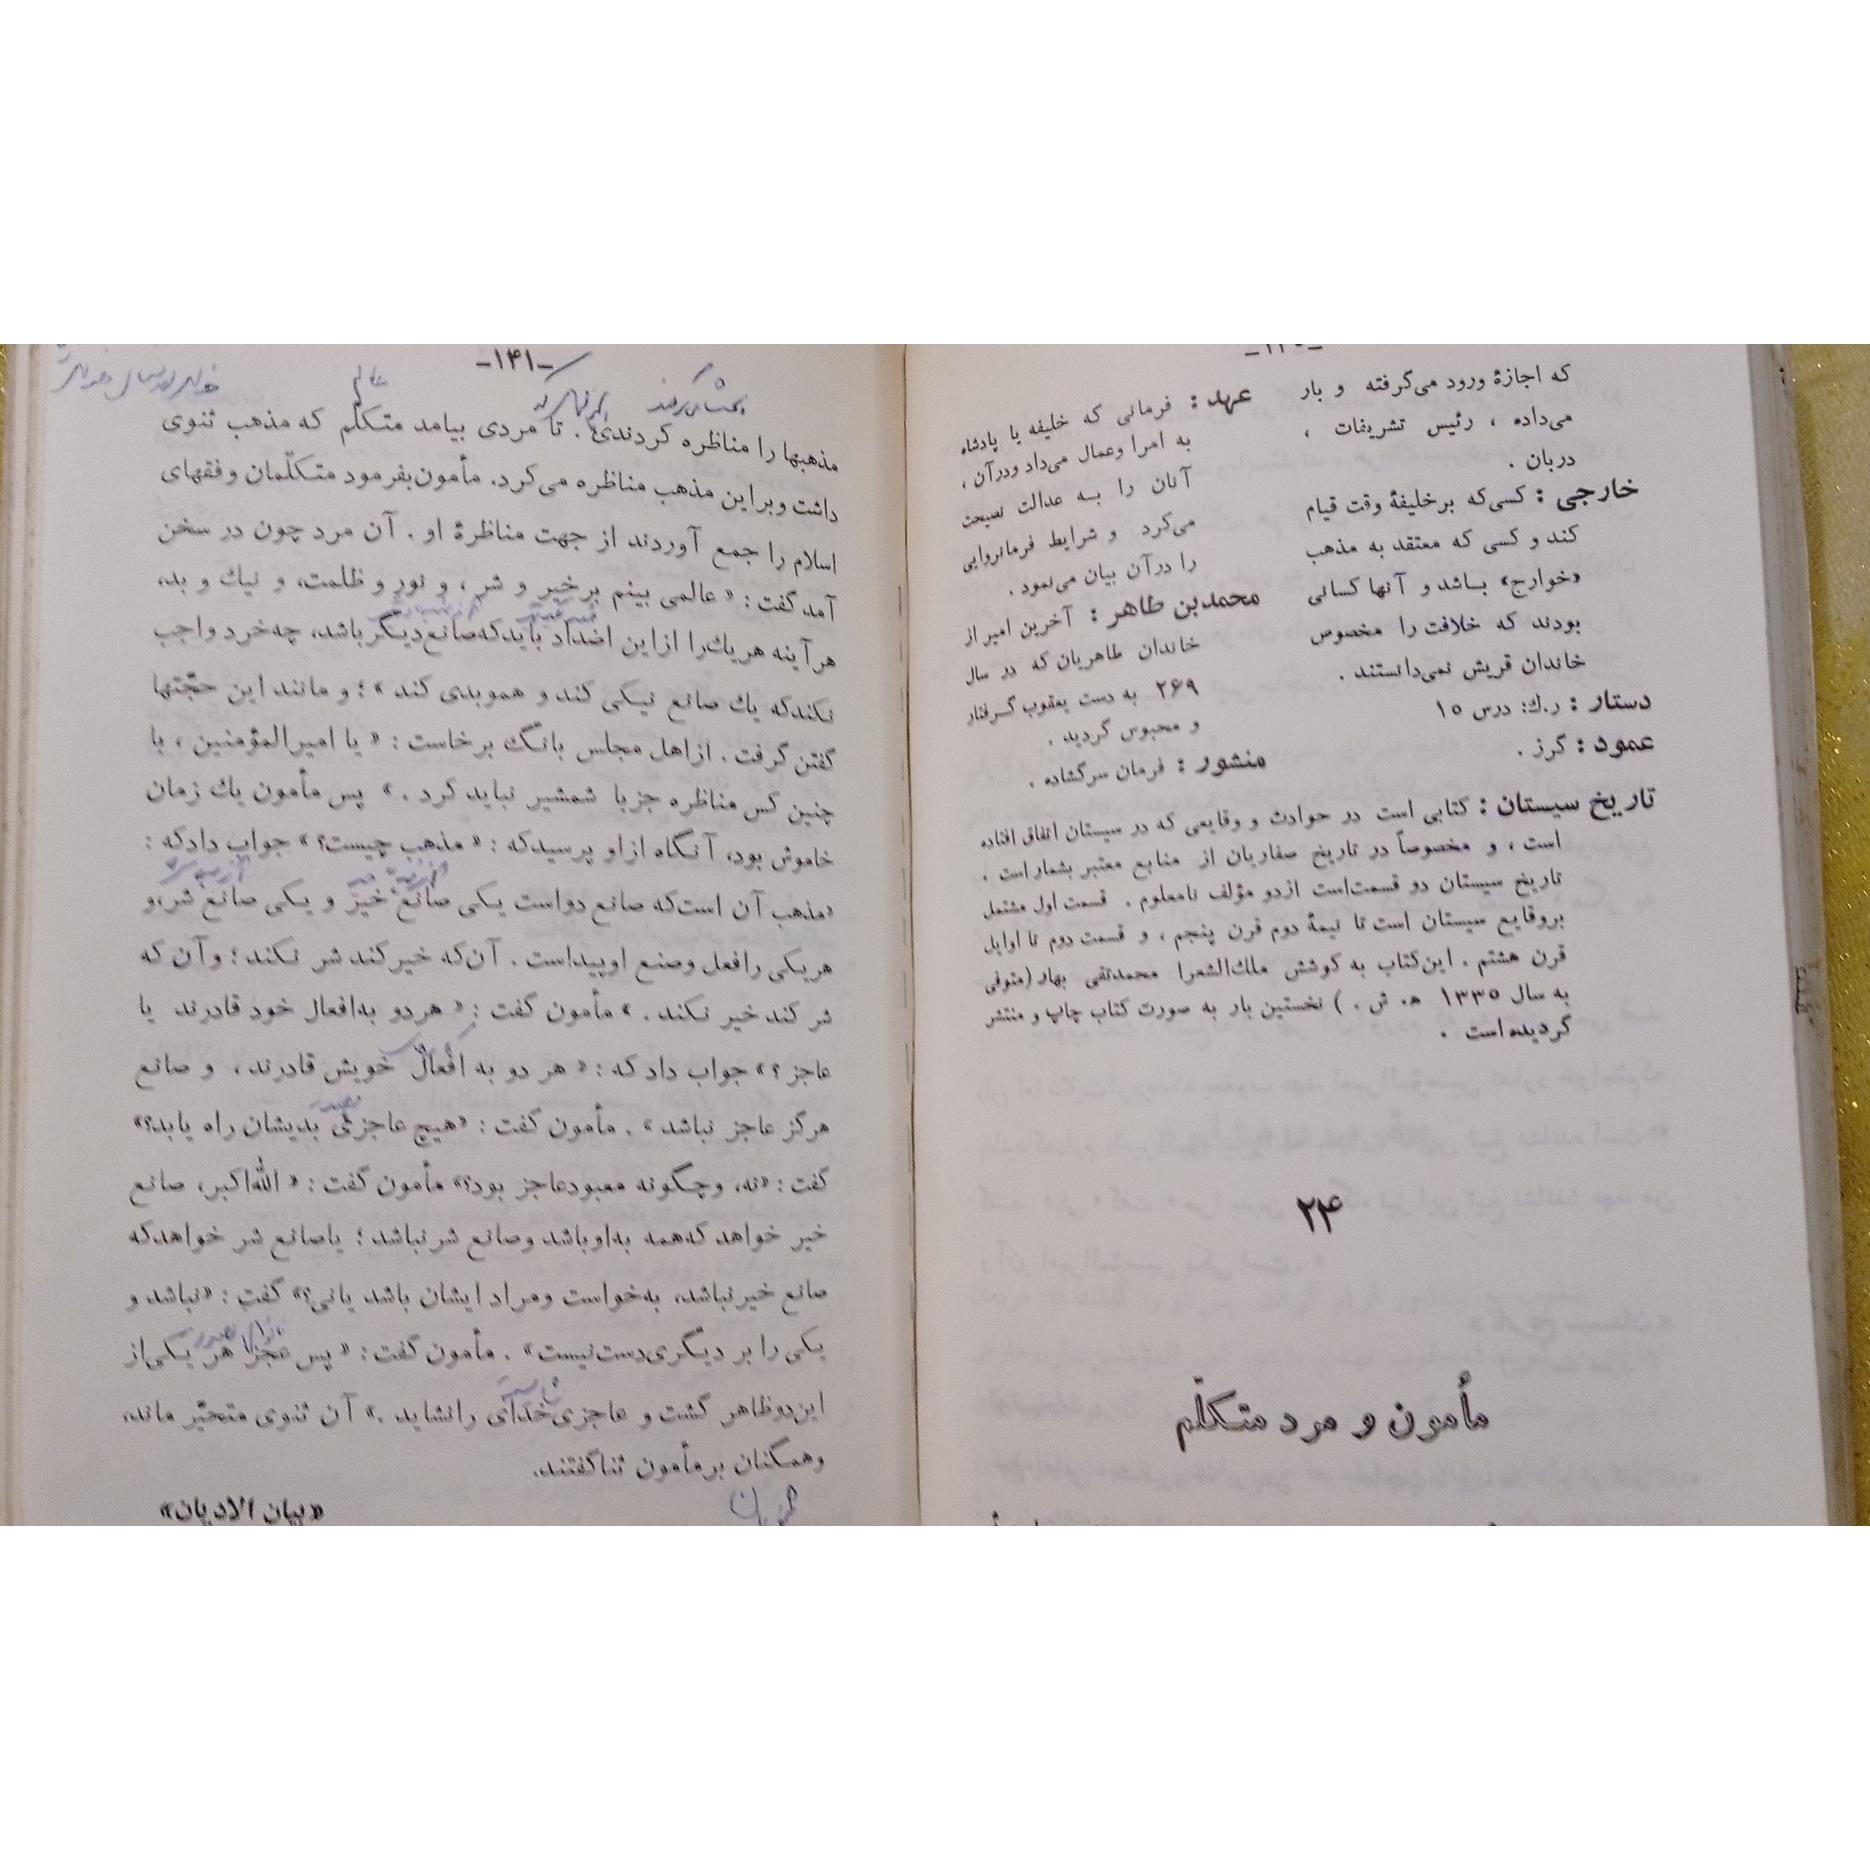 که اجازهٔ ورود می‌گرفته و بار
می‌داده ، رئیس تشریفات ،
دربان .
خارجی : کسی‌که برخلیفهٔ وقت قیام
کند و کسی که معتقد به مذهب
«خوارج» بـاشد و آنها کسانی
بودند که خلافت را مخصوص
خاندان قریش نمی‌دانستند .
دستار : ر.ك: درس ۱۵
عمود : گرز .
عهد : فرمانی که خلیفه یا پادشاه
به امرا وعمال می‌داد ودرآن ،
آنان را بـه عدالت نصیحت
می‌کرد و شرایط فرمانروایی
را درآن بیان می‌نمود .
محمدبن طاهر : آخرین امیر از
خاندان طاهریان که در سال
۲۶۹ به دست یعقوب گـرفتار
و محبوس گردید .
منشور : فرمان سرگشاده .
تاریخ سیستان : کتابی است در حوادث و وقایعی که در سیستان اتفاق افتاده
است ، و مخصوصاً در تاریخ صفاریان از منابع معتبر بشمار است .
تاریخ سیستان دو قسمت‌است ازدو مؤلف نامعلوم . قسمت اول مشتمل
بروقایع سیستان است تا نیمهٔ دوم قرن پنجم ، و قسمت دوم تا اوایل
قرن هشتم . این‌کتاب به کوشش ملك‌الشعرا محمدتقی بهار (متوفی
به سال ۱۳۳۵ ه. ش . ) نخستین بار به صورت کتاب چاپ و منتشر
گردیده‌است .
۲۴
مأمون و مرد متکلّم
ـ۱۴۱ـ
عالم
مذهبها را مناظره کردندی . تا مردی بیامد متـکلّم که مذهب ثنوی
داشت وبراین مذهب مناظره می‌کرد. مأمون‌بفرمود متـکلّمان وفقهای
اسلام را جمع آوردند از جهت مناظرهٔ او . آن مرد چون در سخن
آمد گفت : « عالمی بینم برخیر و شر ، و نور و ظلمت، و نیك و بد،
هرآینه هریك‌را ازاین اضداد باید‌که‌صانع‌دیـگر‌باشد، چه‌خرد واجب
نکند‌که یك صانع نیـکی کند و همو‌بدی کند » ؛ و مانند این حجّتها
گفتن گرفت . ازاهل مجلس بانـگ برخاست : « یا امیرالمؤمنین ، با
چنین کس مناظره جزبا شمشیر نباید کرد . » پس مأمون یك زمان
خاموش بود، آنـگاه ازاو پرسیدکه : « مذهب چیست؟ » جواب دادکه :
«مذهب آن است‌که صانع دواست یـکی صانع خیر و یـکی صانع شر،و
هریـکی رافعل وصنع اوپیداست . آن‌که خیرکند شر نـکند ؛ وآن که
شر کند خیر نـکند . » مأمون گفت : « هردو به‌افعال خود قادرند یا
عاجز ؟» جواب داد که : « هر دو به افعال خویش قادرند ، و صانع
هرگز عاجز نباشد » . مأمون گفت : «هیچ عاجزئی بدیشان راه یابد؟»
گفت : «نه، وچـگونه معبودعاجز بود؟» مأمون گفت : « الله‌اکبر، صانع
خیر خواهد که‌همه به‌اوباشد وصانع شرنباشد ؛ یاصانع شر خواهدکه
صانع خیرنباشد، به‌خواست ومراد ایشان باشد یانی؟» گفت : «نباشد و
یـکی را بر دیـگری‌دست‌نیست» . مأمون گفت : « پس عجز هر یـکی‌از
این‌دوظاهر گشت و عاجزی‌خدای رانشاید .» آن ثنوی متحیّر ماند،
وهمـگنان برمأمون ثناگفتند.
«بیان الادیان»